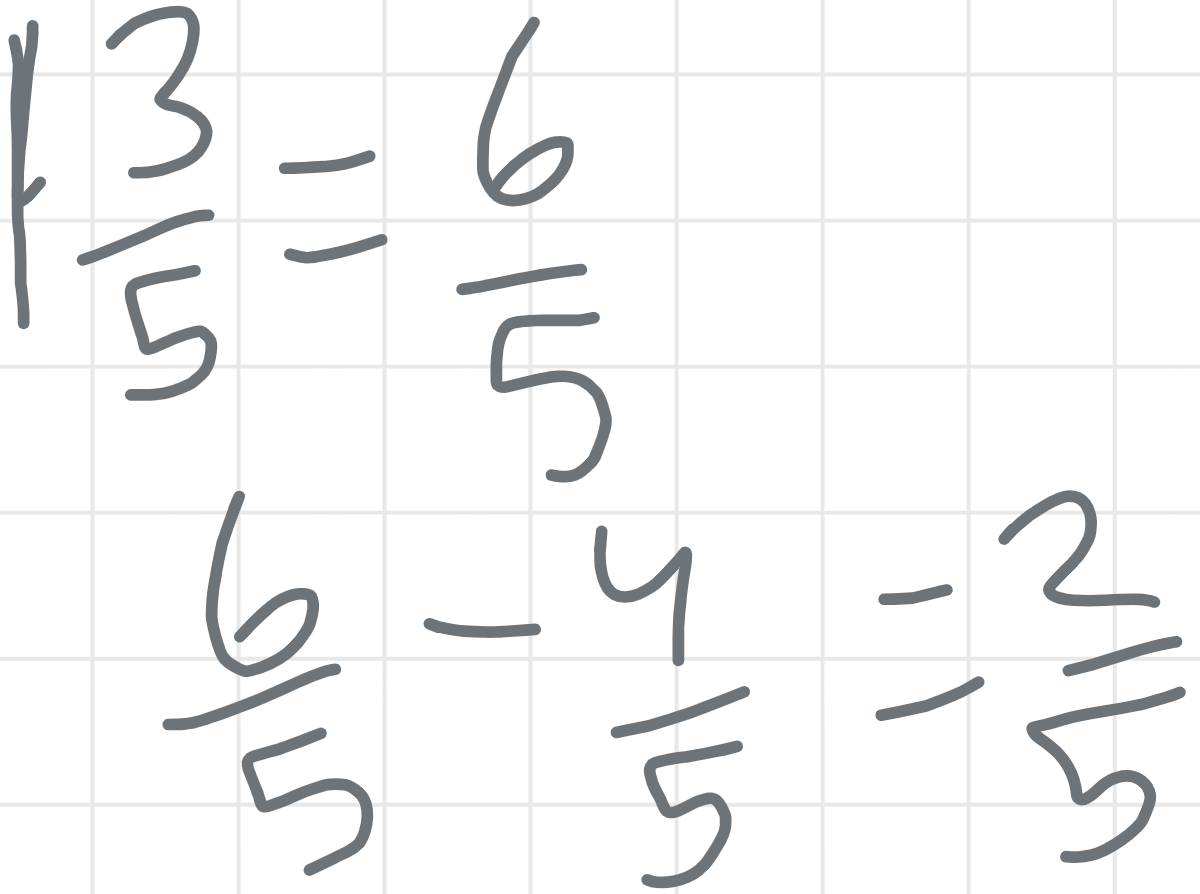 1 3/5 = 6/5
6/5 - 4/5 = 2/5